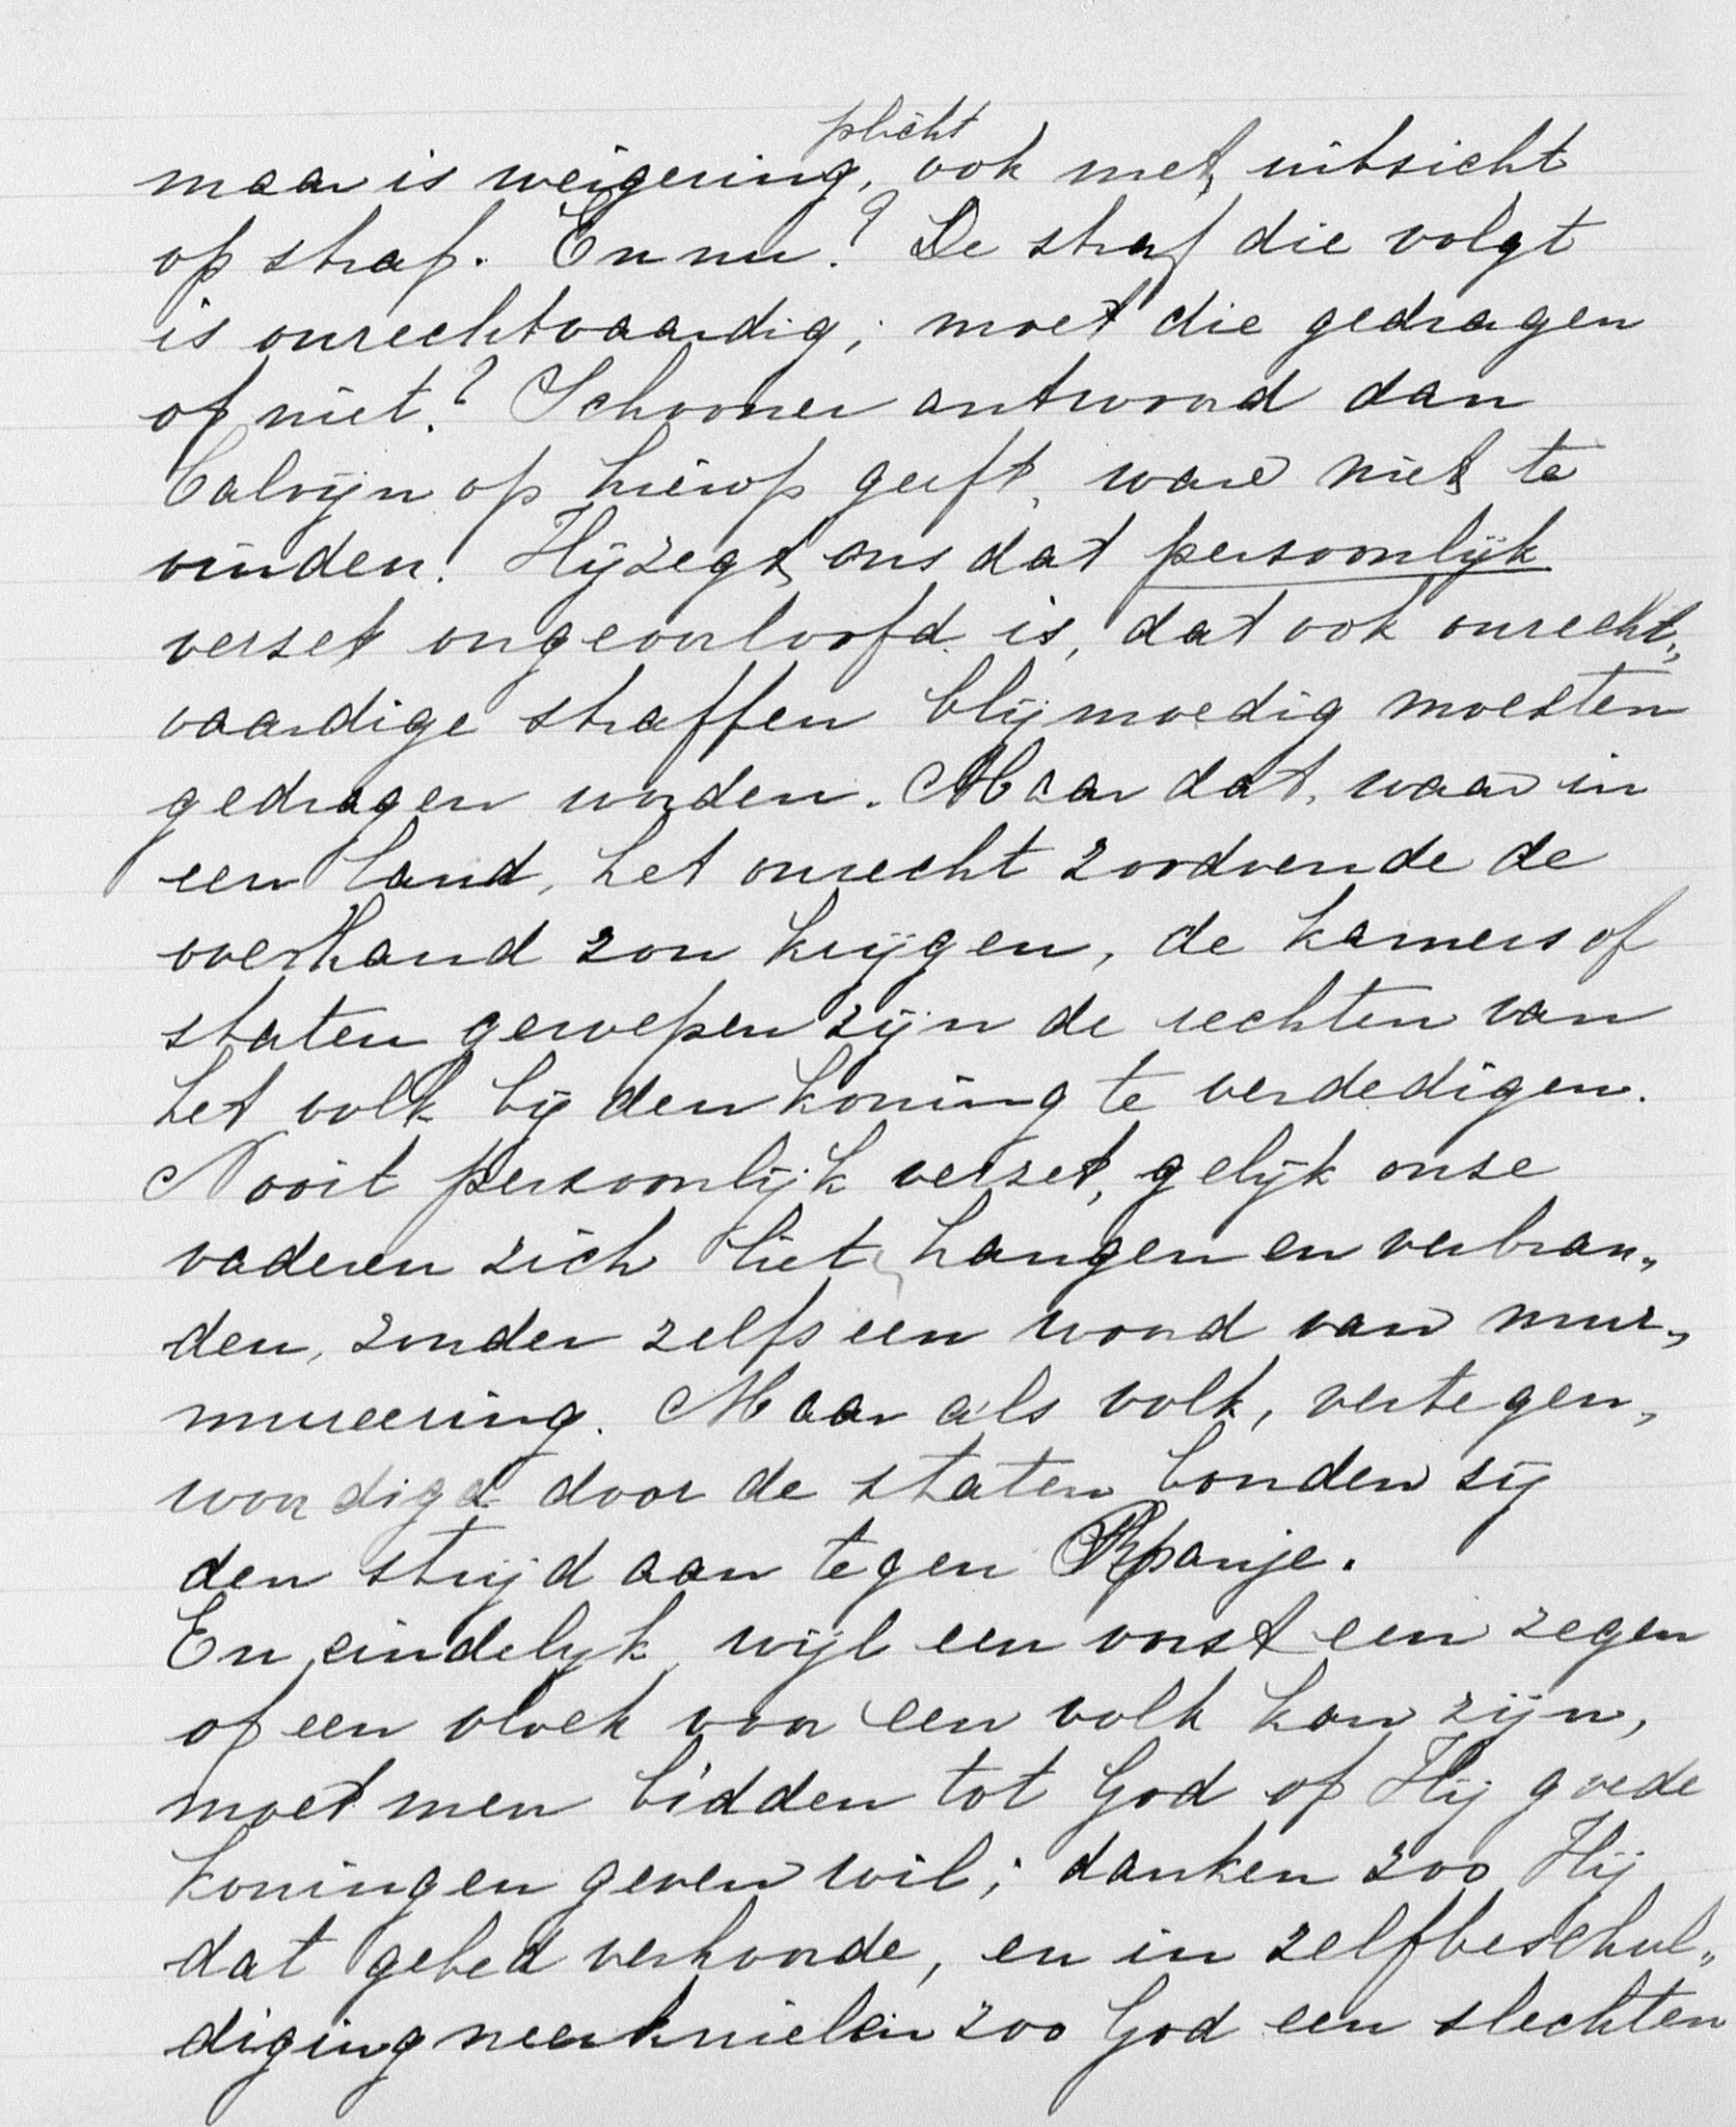 plicht
maar is weigering, ook met uitsicht
op straf. En nu? De straf die volgt
is onrechtvaardig; moet die gedragen
of niet? Schooner antwoord dan
Calvijn op hierop geeft, ware niet te
vinden. Hij zegt ons dat persoonlijk
verset ongeoorloofd is, dat ook onrecht„
vaardige straffen blijmoedig moesten
gedragen worden. Maar dat, waar in
een land, het onrecht zoodoende de
overhand zou krijgen, de kamers of
staten geroepen zijn de rechten van
het volk bij den koning te verdedigen.
Nooit persoonlijk verzet, gelijk onse
vaderen zich liet hangen en verbran„
den, zonder zelfs een woord van mur„
mureering. Maar als volk, vertegen„
woordigd door de staten bonden sij
den strijd aan tegen Spanje.
En eindelijk wijl een vorst een zegen
of een vloek voor een volk kan zijn,
moet men bidden tot God of Hij goede
koningen geven wil; danken zoo Hij
dat gebed verhoorde, en in zelfbeschul„
diging neerknielen zoo God een slechten